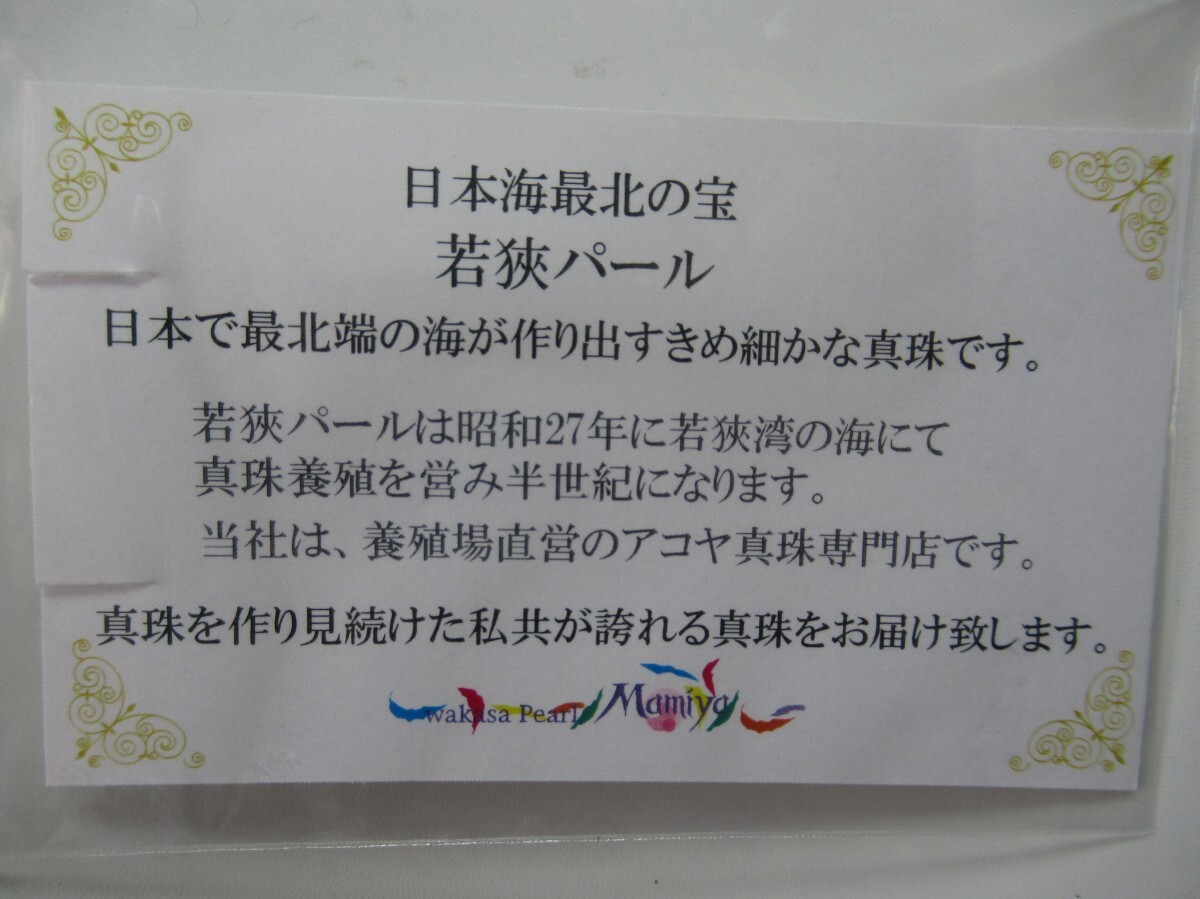 日本海最北の宝
若狹パール
日本で最北端の海が作り出すきめ細かな真珠です。
若狹パールは昭和27年に若狹湾の海にて
真珠養殖を営み半世紀になります。
当社は、養殖場直営のアコヤ真珠専門店です。
真珠を作り見続けた私共が誇れる真珠をお届け致します。
wakasa Pearl Mamiya